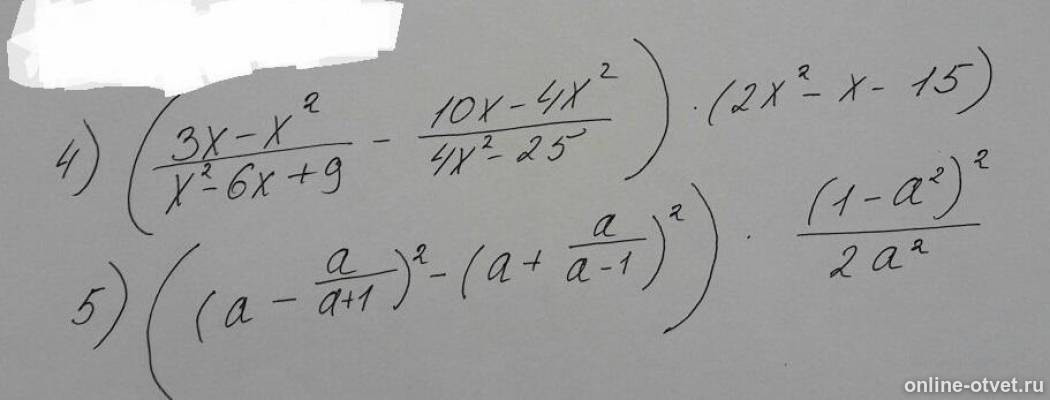 4) ( (3x - x²)/(x² - 6x + 9) - (10x - 4x²)/(4x² - 25) ) · (2x² - x - 15)
5) ( (a - a/(a+1))² - (a + a/(a-1))² ) · (1 - a²)²/(2a²)
online-otvet.ru